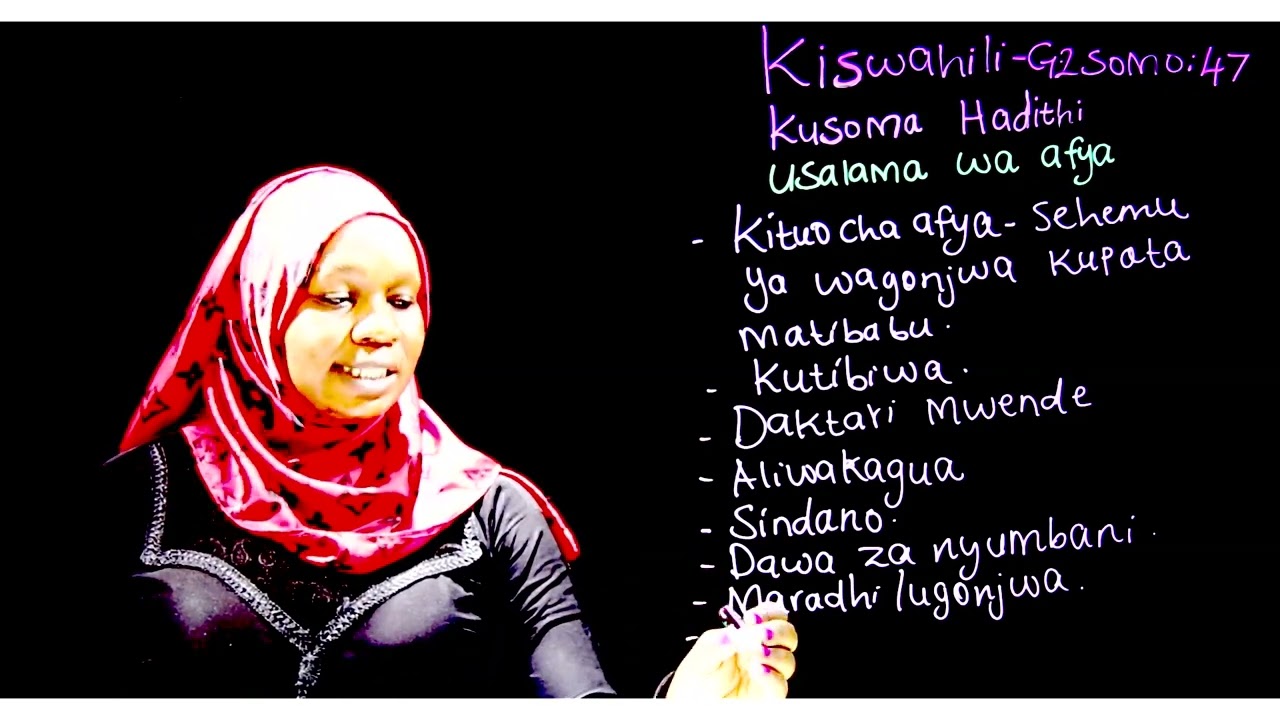 Kiswahili-G2Somo:47
Kusoma Hadithi
Usalama wa afya
- Kituo cha afya - Sehemu
ya wagonjwa kupata
matibabu.
- Kutibiwa.
- Daktari Mwende
- Aliwakagua
- Sindano.
- Dawa za nyumbani.
- Maradhi /ugonjwa.
-